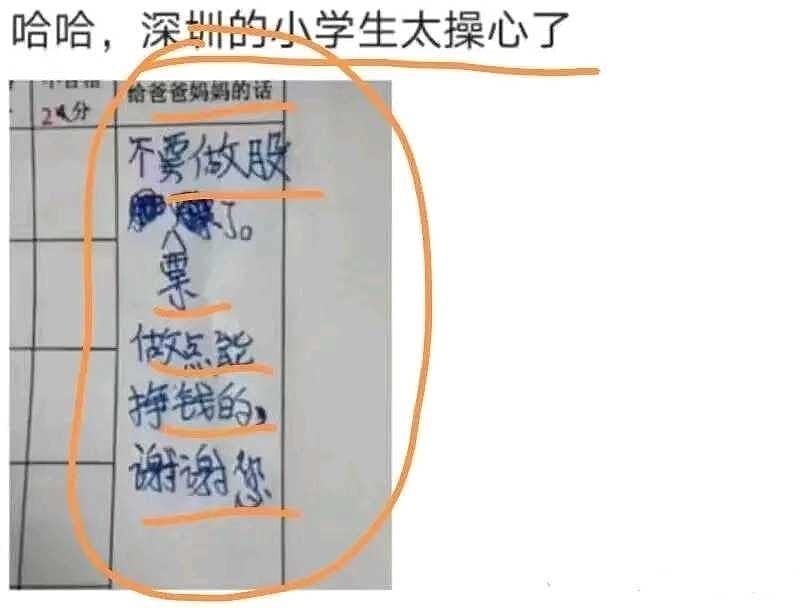 哈哈，深圳的小学生太操心了
给爸爸妈妈的话
分
不要做股
了。
票
做点能
挣钱的，
谢谢您